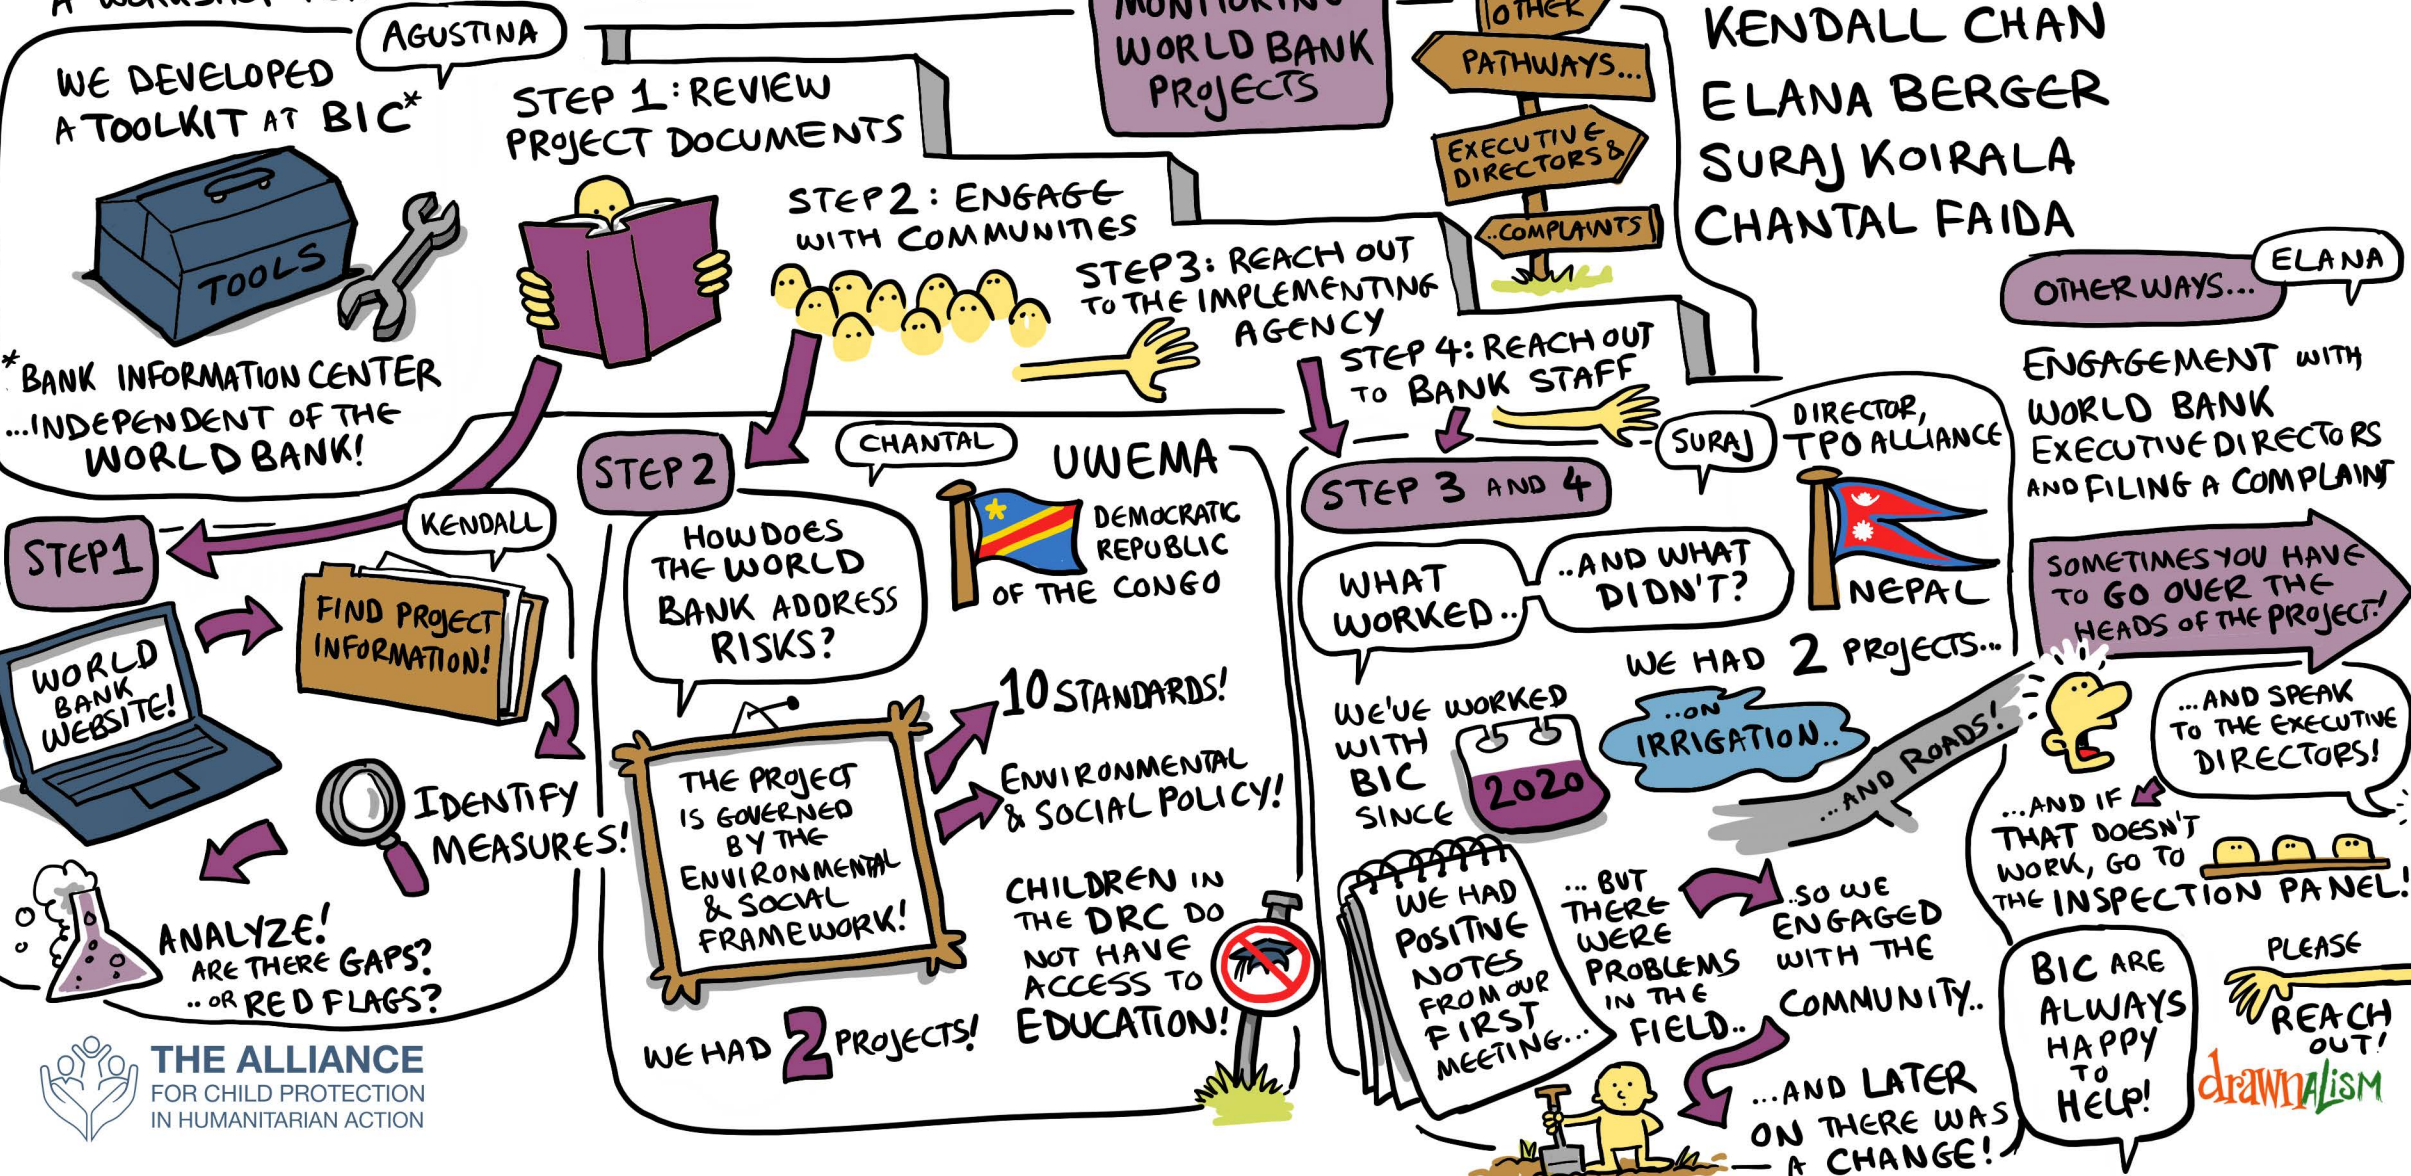 A WORKSHOP
AGUSTINA
WE DEVELOPED
A TOOLKIT AT BIC*
TOOLS
*BANK INFORMATION CENTER
...INDEPENDENT OF THE
WORLD BANK!
STEP 1: REVIEW
PROJECT DOCUMENTS
STEP 2: ENGAGE
WITH COMMUNITIES
STEP 3: REACH OUT
TO THE IMPLEMENTING
AGENCY
STEP 4: REACH OUT
TO BANK STAFF
MONITORING
WORLD BANK
PROJECTS
OTHER
PATHWAYS...
EXECUTIVE
DIRECTORS &
..COMPLAINTS
KENDALL CHAN
ELANA BERGER
SURAJ KOIRALA
CHANTAL FAIDA
STEP 1
KENDALL
WORLD
BANK
WEBSITE!
FIND PROJECT
INFORMATION!
IDENTIFY
MEASURES!
ANALYZE!
ARE THERE GAPS?
..OR RED FLAGS?
THE ALLIANCE
FOR CHILD PROTECTION
IN HUMANITARIAN ACTION
STEP 2
CHANTAL
UWEMA
DEMOCRATIC
REPUBLIC
OF THE CONGO
HOW DOES
THE WORLD
BANK ADDRESS
RISKS?
THE PROJECT
IS GOVERNED
BY THE
ENVIRONMENTAL
& SOCIAL
FRAMEWORK!
10 STANDARDS!
ENVIRONMENTAL
& SOCIAL POLICY!
CHILDREN IN
THE DRC DO
NOT HAVE
ACCESS TO
EDUCATION!
WE HAD 2 PROJECTS!
STEP 3 AND 4
SURAJ
DIRECTOR,
TPO ALLIANCE
NEPAL
WHAT
WORKED..
..AND WHAT
DIDN'T?
WE'VE WORKED
WITH
BIC
SINCE
2020
WE HAD 2 PROJECTS...
..ON
IRRIGATION..
...AND ROADS!
WE HAD
POSITIVE
NOTES
FROM OUR
FIRST
MEETING...
...BUT
THERE
WERE
PROBLEMS
IN THE
FIELD..
..SO WE
ENGAGED
WITH THE
COMMUNITY..
...AND LATER
ON THERE WAS
A CHANGE!
OTHER WAYS...
ELANA
ENGAGEMENT WITH
WORLD BANK
EXECUTIVE DIRECTORS
AND FILING A COMPLAINT
SOMETIMES YOU HAVE
TO GO OVER THE
HEADS OF THE PROJECT!
...AND SPEAK
TO THE EXECUTIVE
DIRECTORS!
...AND IF
THAT DOESN'T
WORK, GO TO
THE INSPECTION PANEL!
BIC ARE
ALWAYS
HAPPY
TO
HELP!
PLEASE
REACH
OUT!
drawnalism